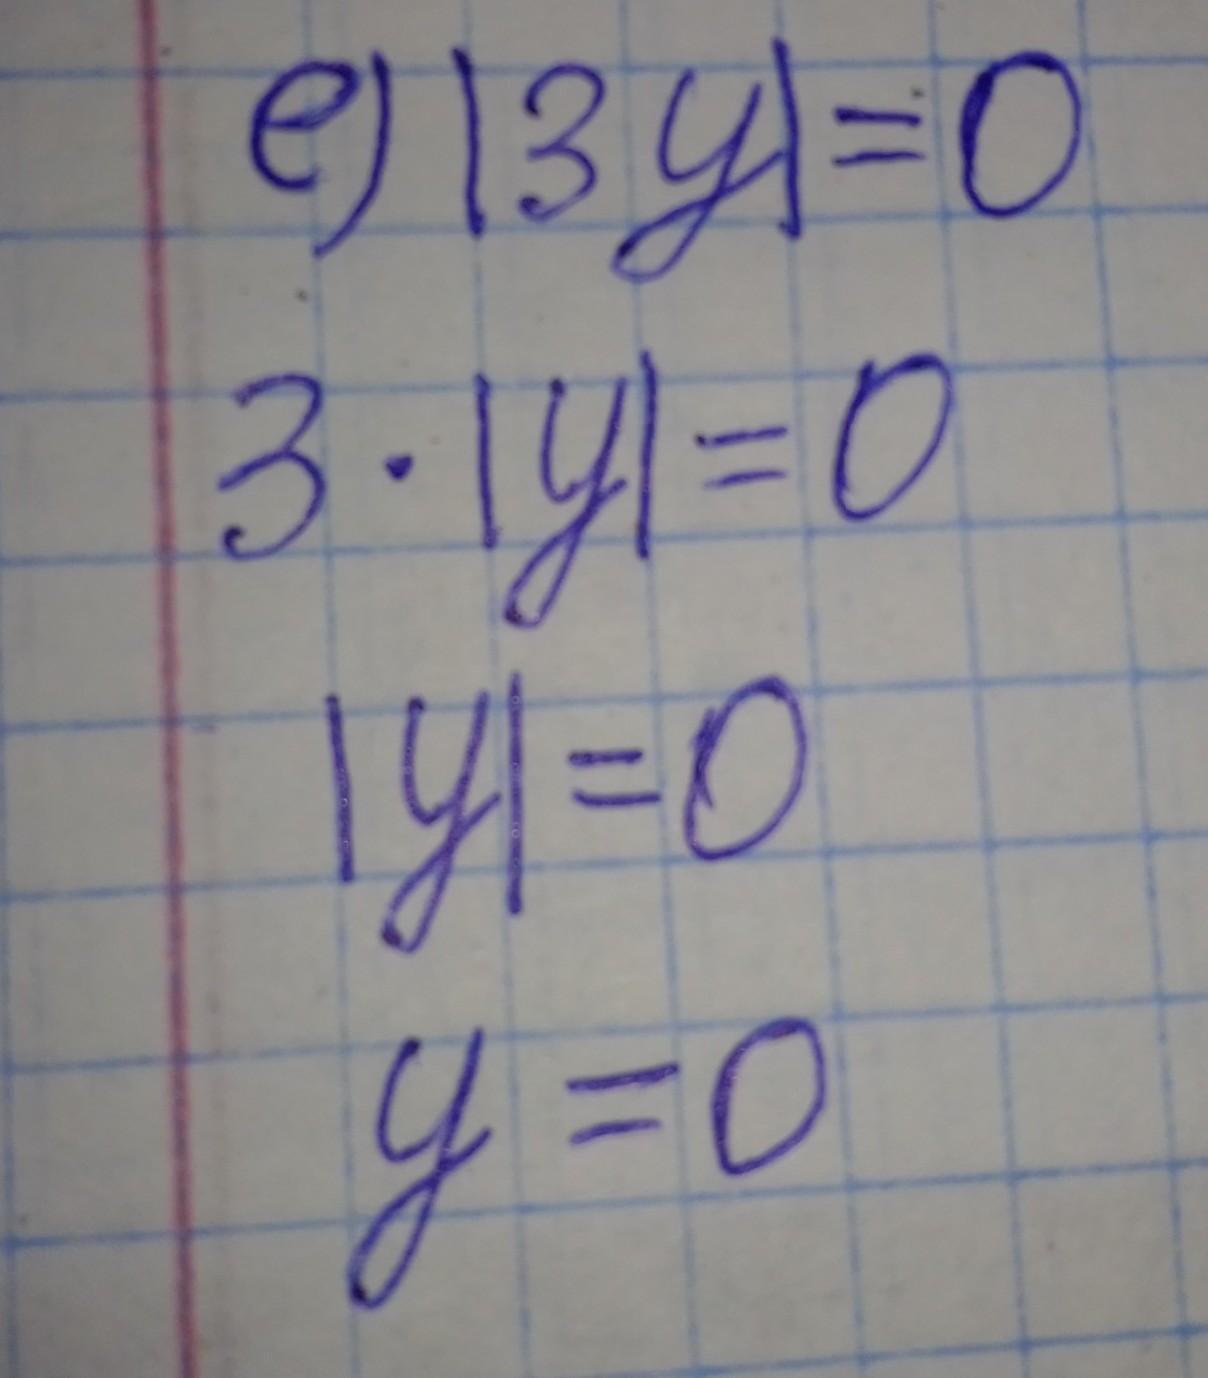 е) |3y|=0
3·|y|=0
|y|=0
y=0